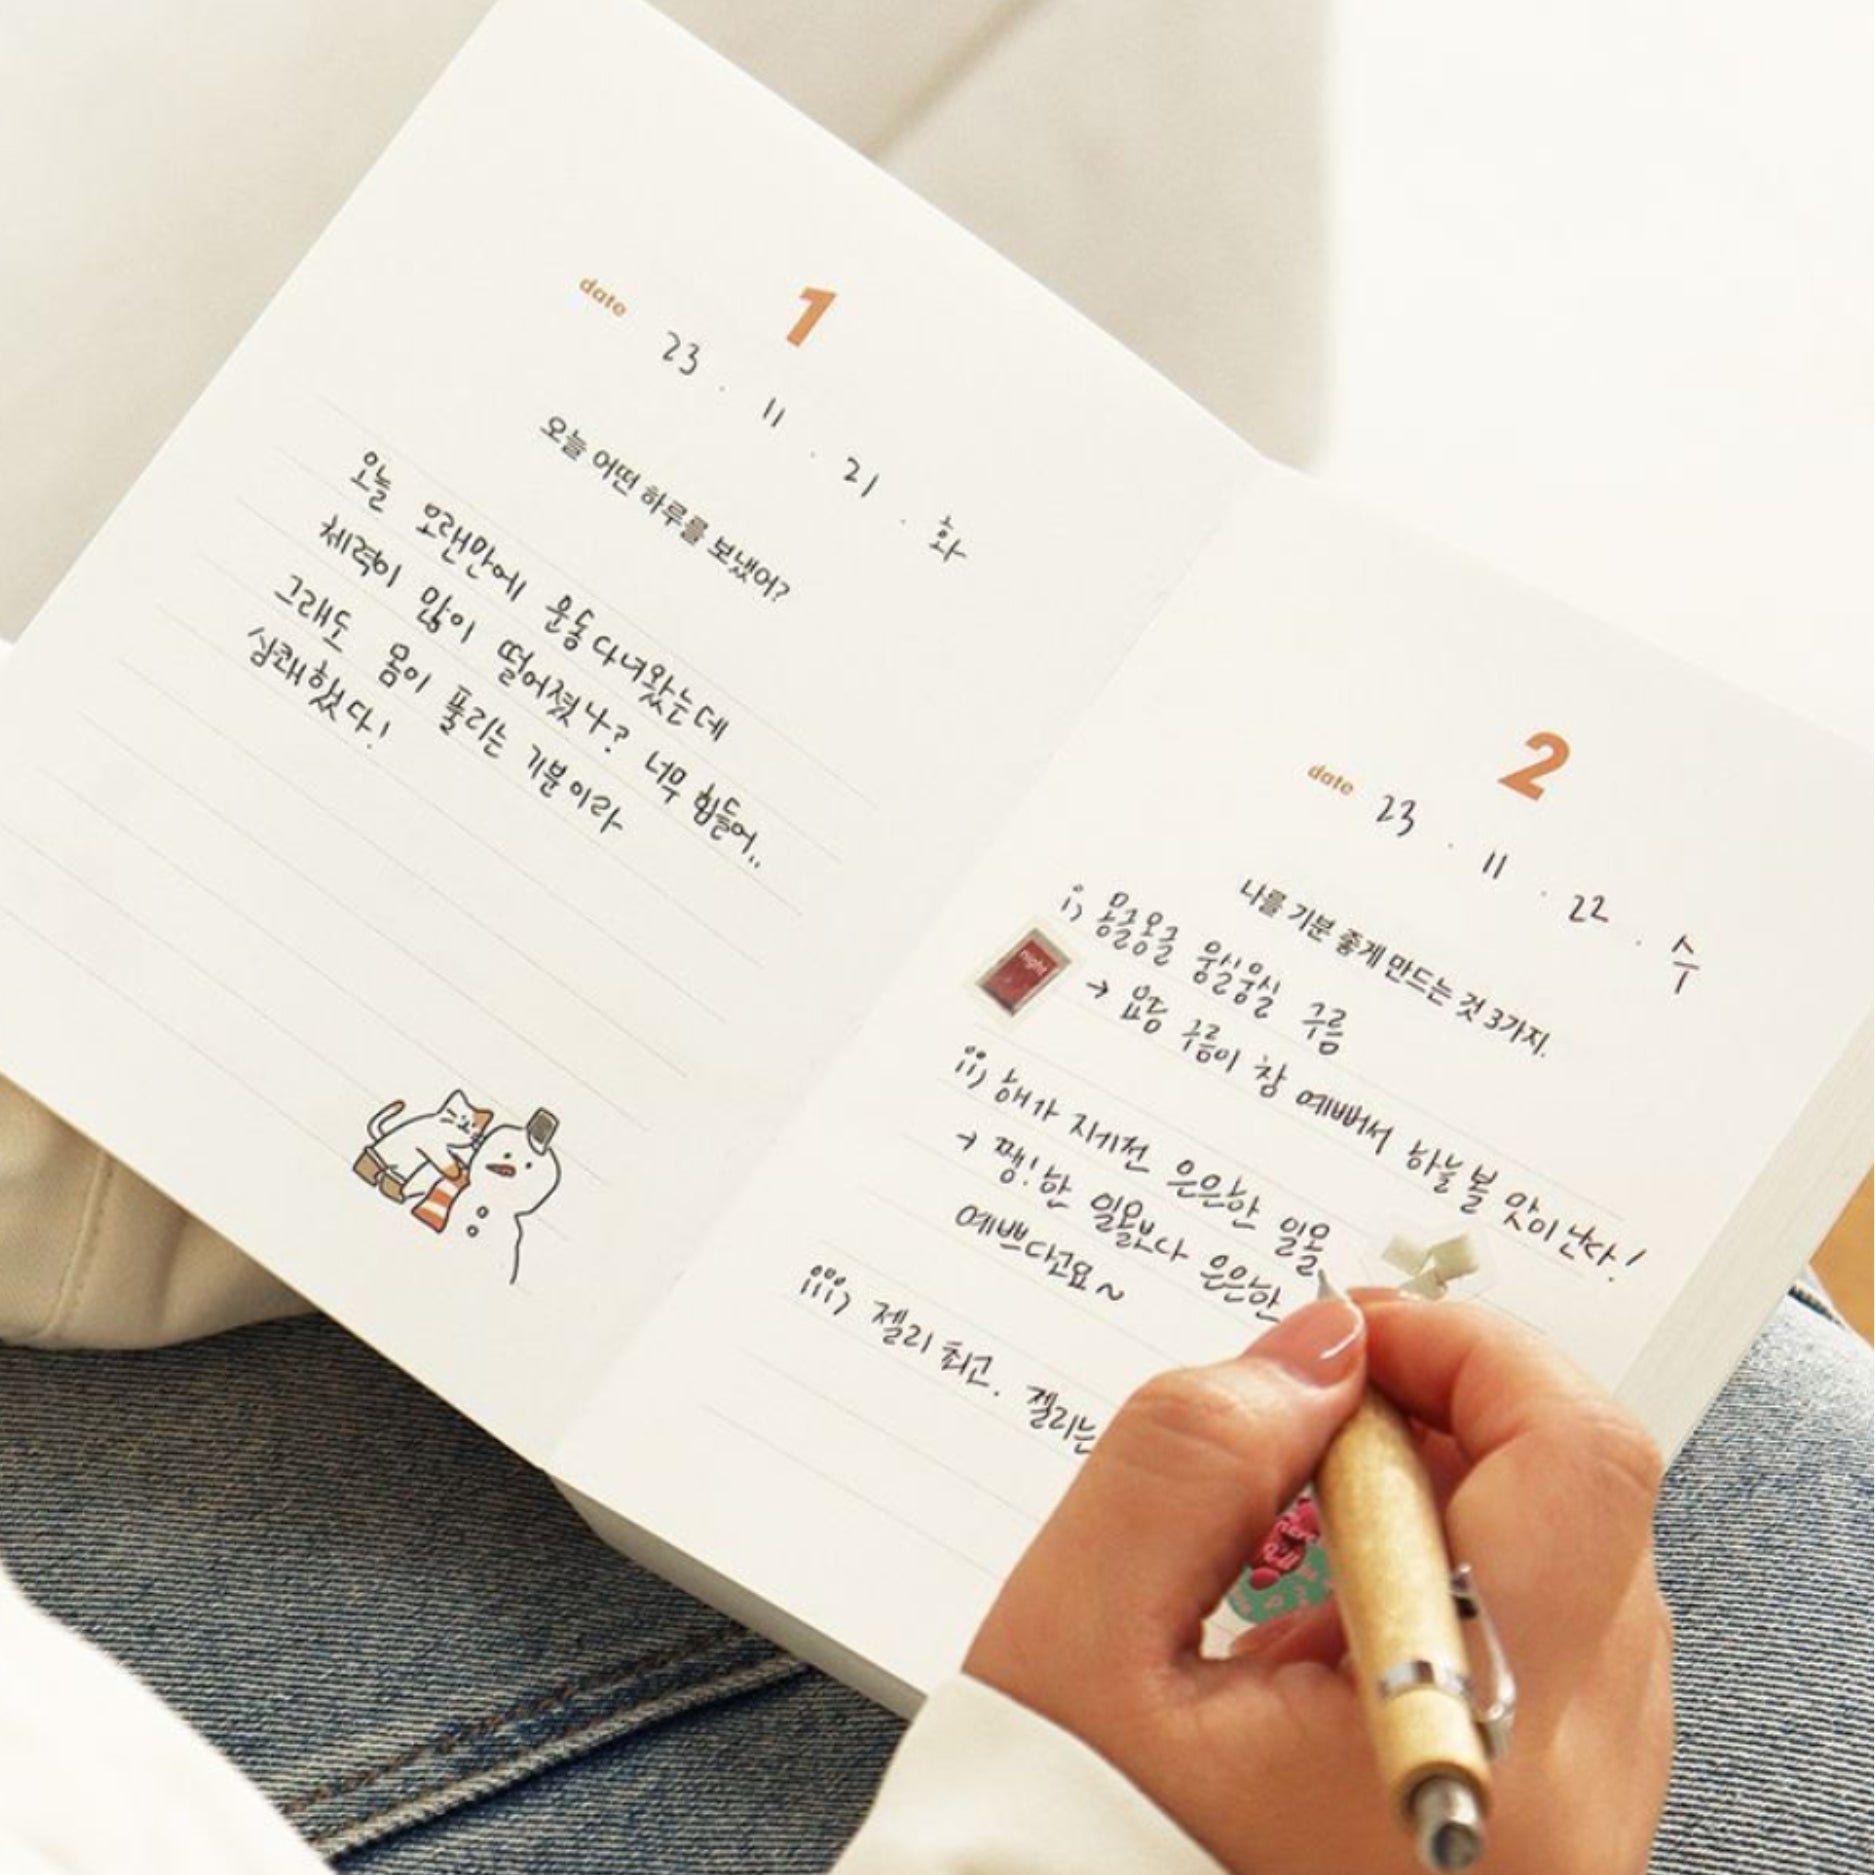 1
date 23 . 11 . 21 . 화
오늘 어떤 하루를 보냈어?
오늘 오랜만에 운동 다녀왔는데
체력이 많이 떨어졌나? 너무 힘들어..
그래도 몸이 풀리는 기분이라
상쾌했다!
2
date 23 . 11 . 22 . 수
나를 기분 좋게 만드는 것 3가지.
i) 몽글몽글 뭉실뭉실 구름
night
→ 요즘 구름이 참 예뻐서 하늘 볼 맛이 난다!
ii) 해가 지기전 은은한 일몰
→ 쨍!한 일몰보다 은은한
예쁘다고요~
iii) 젤리 최고. 젤리는